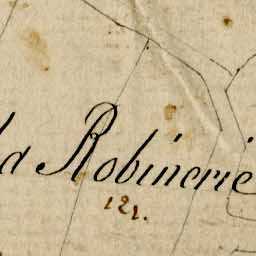 la Robinerie
121.